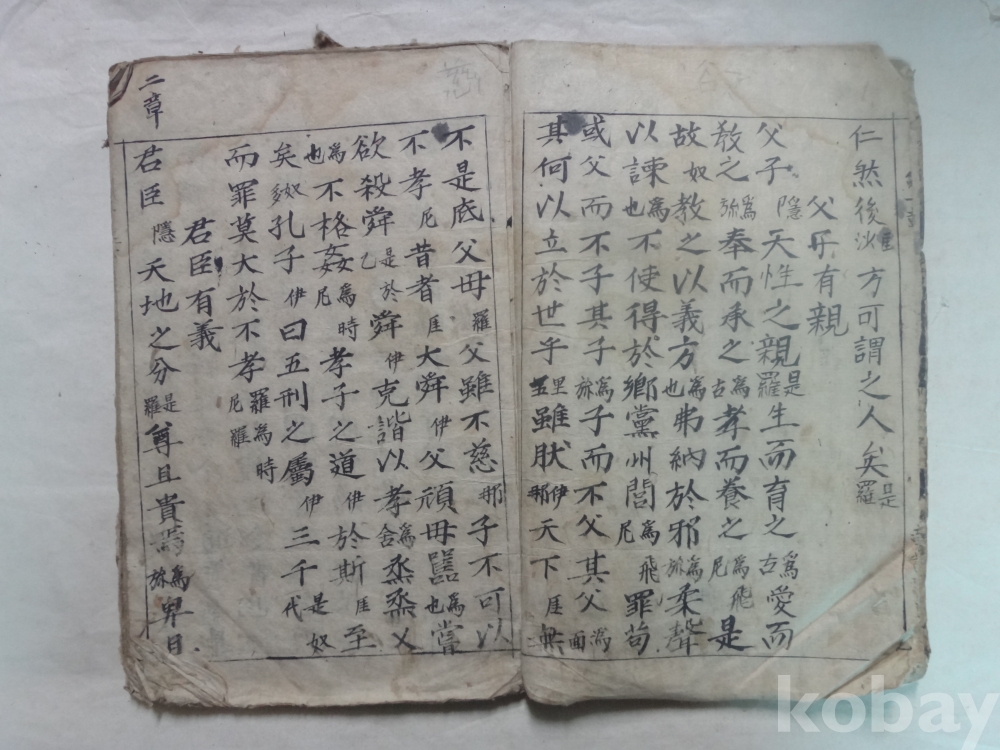 仁然後沙方可謂之人矣是羅
父子有親
父子隱天性之親是羅生而育之爲古愛而
敎之爲旀奉而承之爲古孝而養之爲飛尼是
故奴敎之以義方爲也弗納於邪爲旀柔聲
以諫爲也不使得於鄕黨州閭爲飛尼罪苟
或父而不子其子爲旀子而不父其父爲面
其何以立於世乎里五雖肰伊那天下厓無
不是底父母羅父雖不慈那子不可以
不孝尼昔者厓大舜伊父頑母嚚爲也嘗
欲殺舜是於乙舜伊克諧以孝爲舍烝烝乂
爲也不格姦爲時尼孝子之道伊於斯厓至
矣奴多孔子伊曰五刑之屬伊三千是奴代
而罪莫大於不孝羅爲時尼羅
君臣有義
二章
君臣隱天地之分是羅尊且貴焉爲旀卑且
kobay